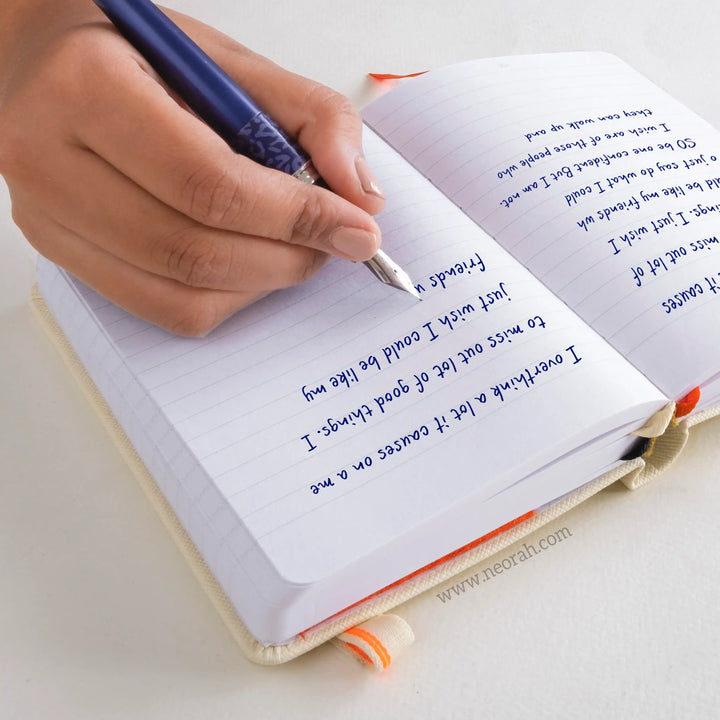 it causes
miss out lot of
ings. I just wish I
uld be like my friends wh
o just say do what I could
SO be one confident But I am not.
I wish are of those people who
they can walk up and
I overthink a lot it causes on a me
to miss out lot of good things. I
just wish I could be like my
friends w
www.neorah.com